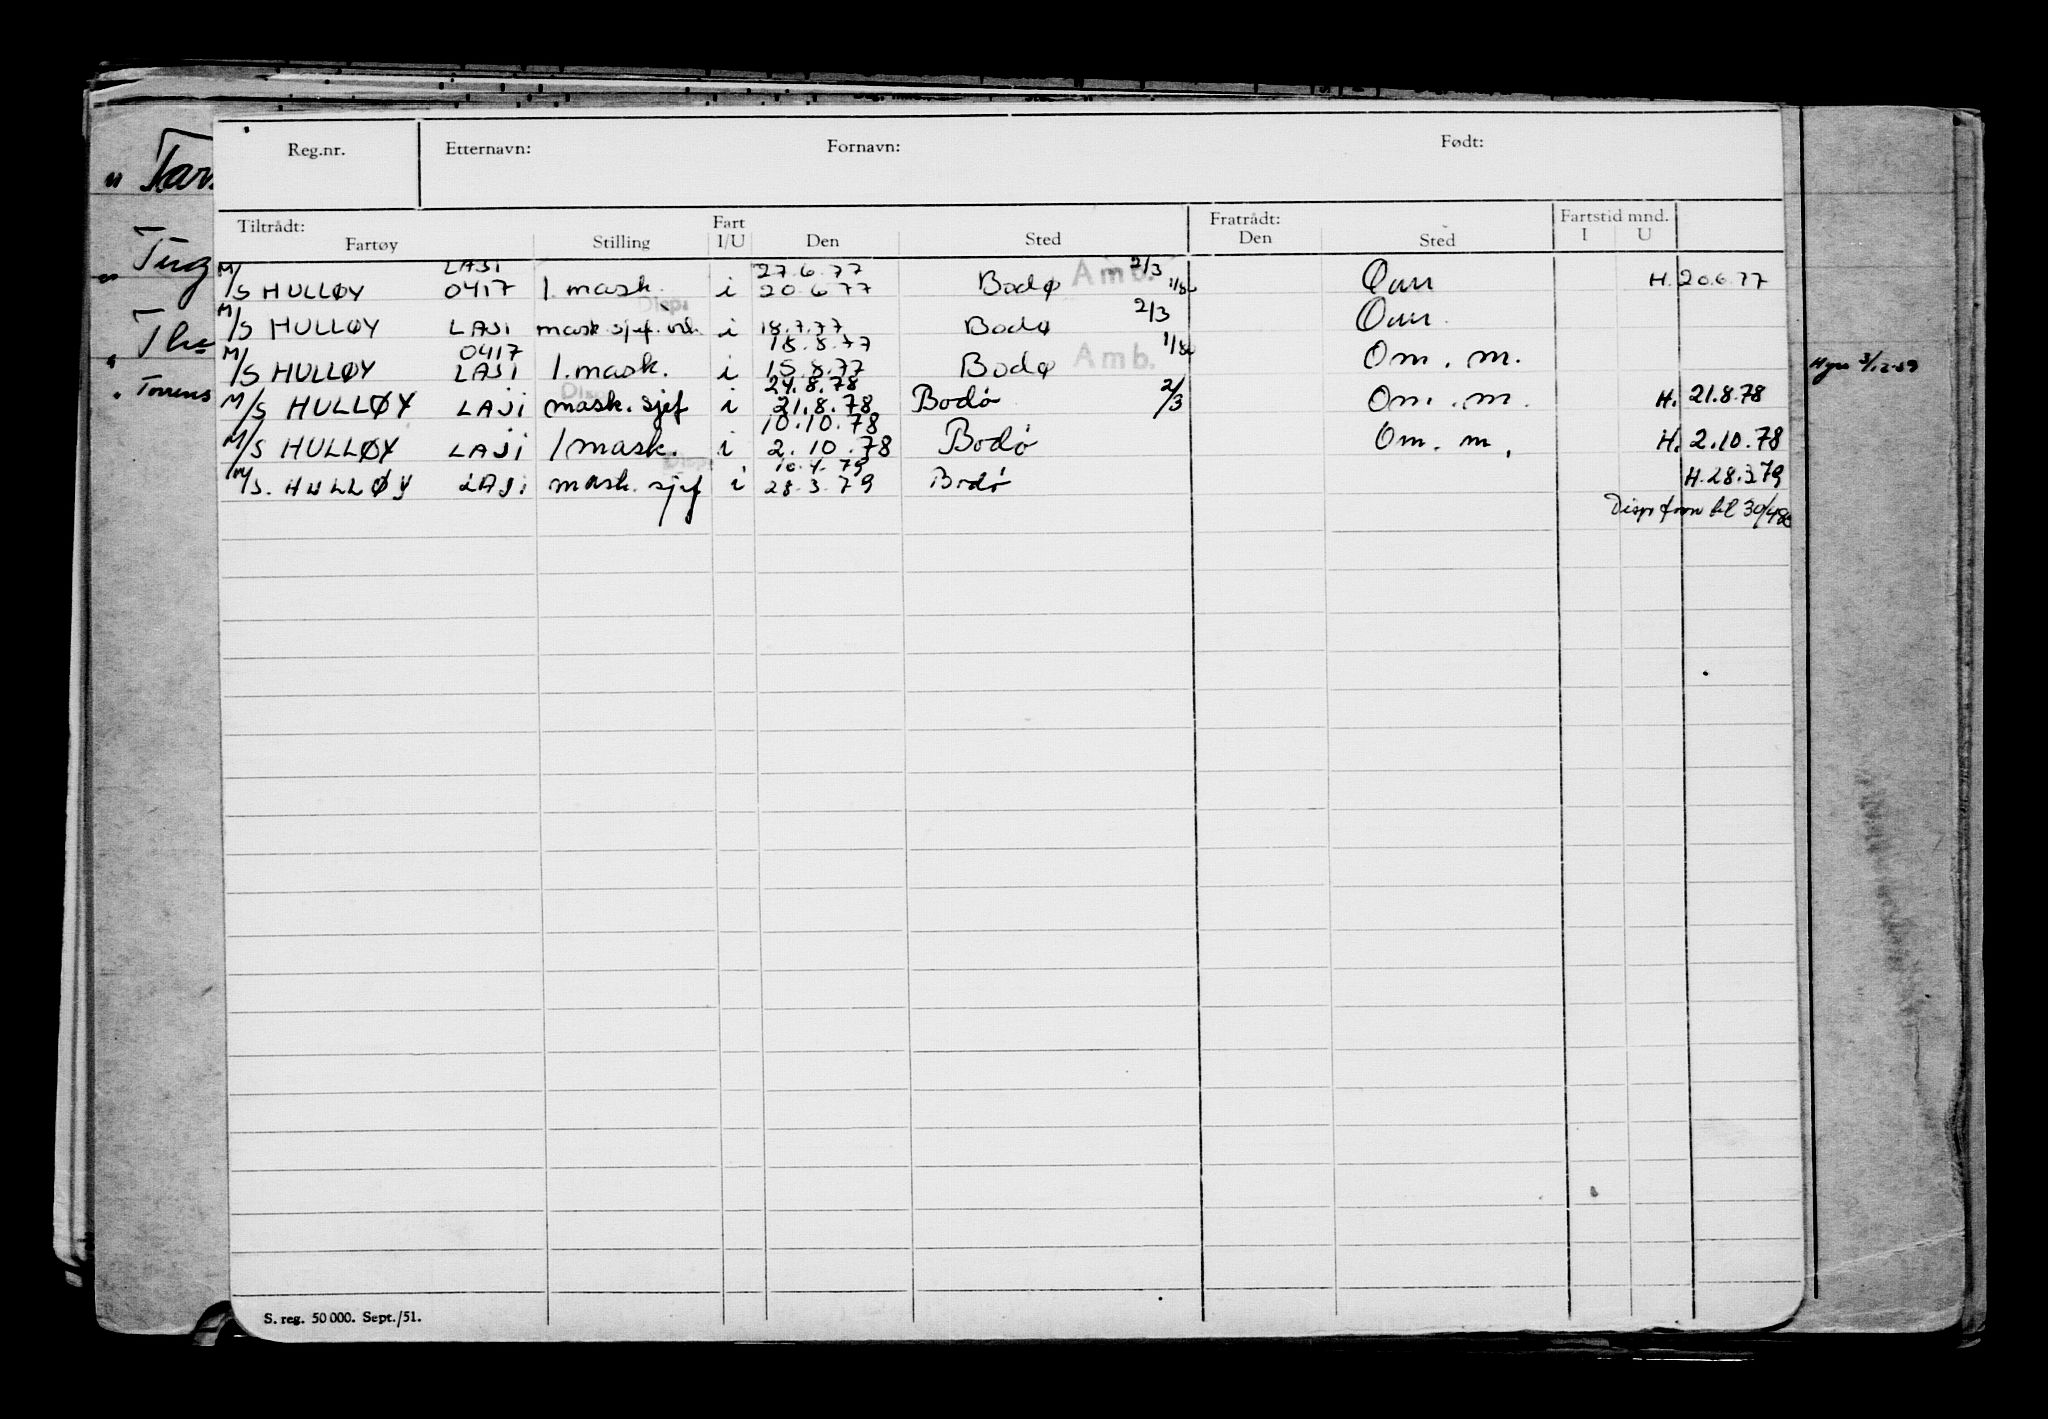 Reg.nr. Etternavn: Fornavn: Født:
Tiltrådt: Fart Fratrådt: Fartstid mnd.
Fartøy Stilling I/U Den Sted Den Sted I U
LAJI 27.6.77 Amb. 2/3
M/S HULLØY 0417 1. mask. i 20.6.77 Bodø H. 20.6.77
Disp. 2/3
M/S HULLØY LAJI mask. sjef. i 18.7.77 Bodø
0417 18.8.77 Amb.
M/S HULLØY LAJI 1. mask. i 15.8.77 Bodø Om. m.
Disp. 24.8.78
M/S HULLØY LAJI mask. sjef i 21.8.78 Bodø 2/3 Om. m. H. 21.8.78
10.10.78
M/S HULLØY LAJI 1 mask. i 2.10.78 Bodø Om. m. H. 2.10.78
Disp. 10.4.79
M/S. HULLØY LAJI mask. sjef i 28.3.79 Bodø H. 28.3.79
Disp
til 30/4
S. reg. 50 000. Sept./51.
Torrens